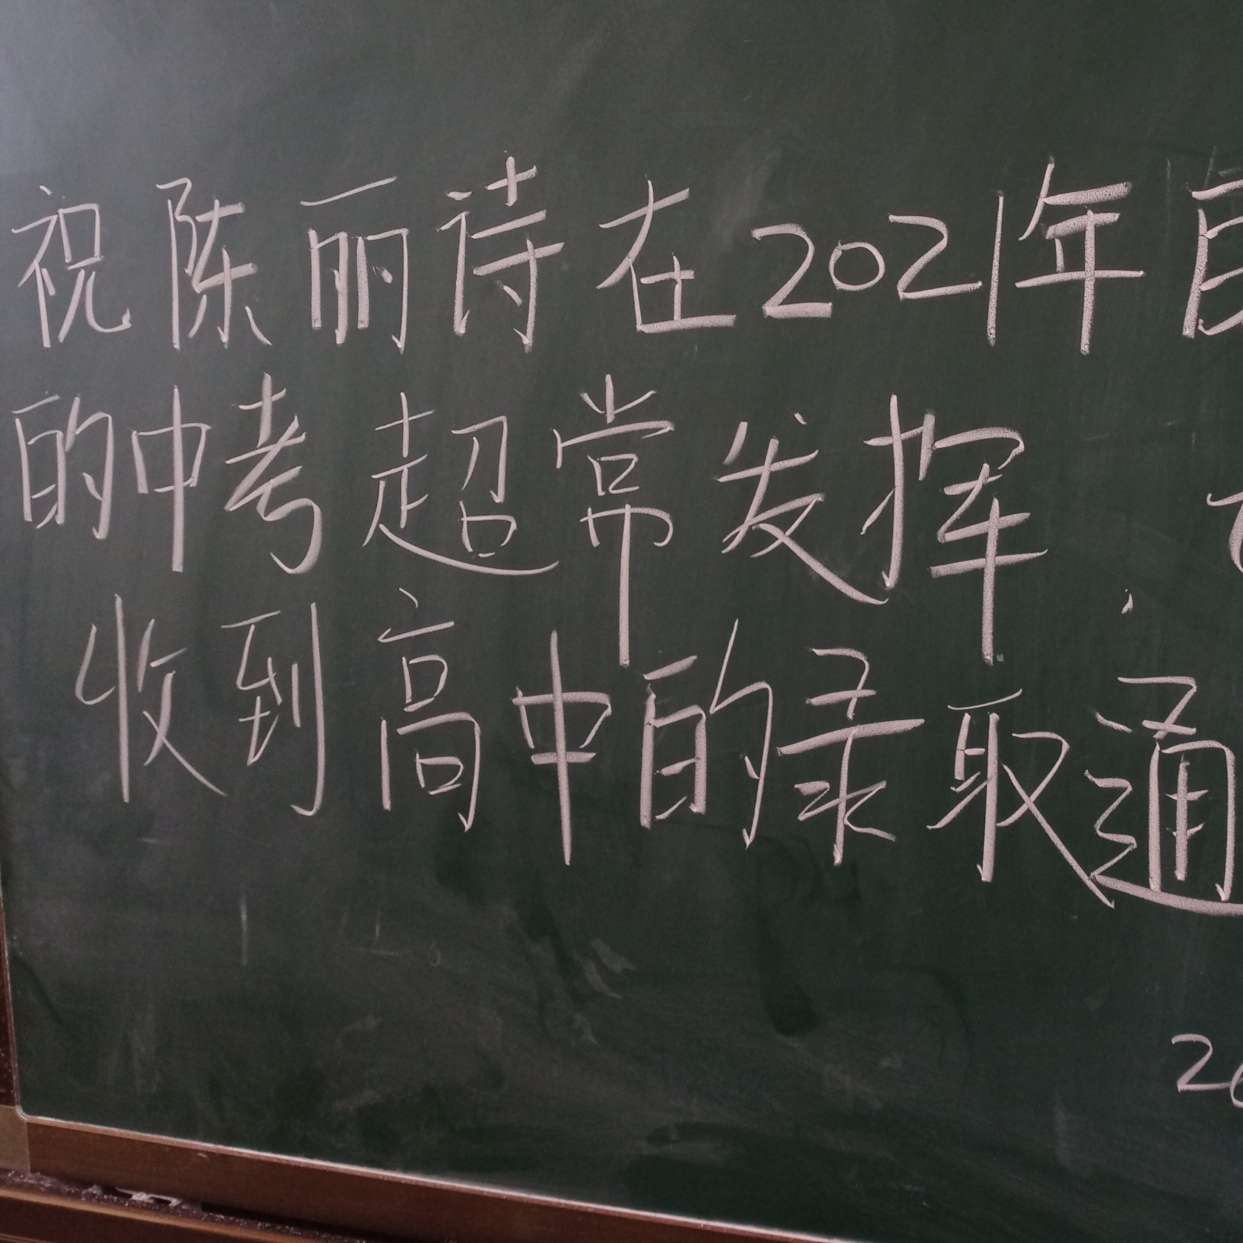 祝陈丽诗在2021年
的中考超常发挥，
收到高中的录取通